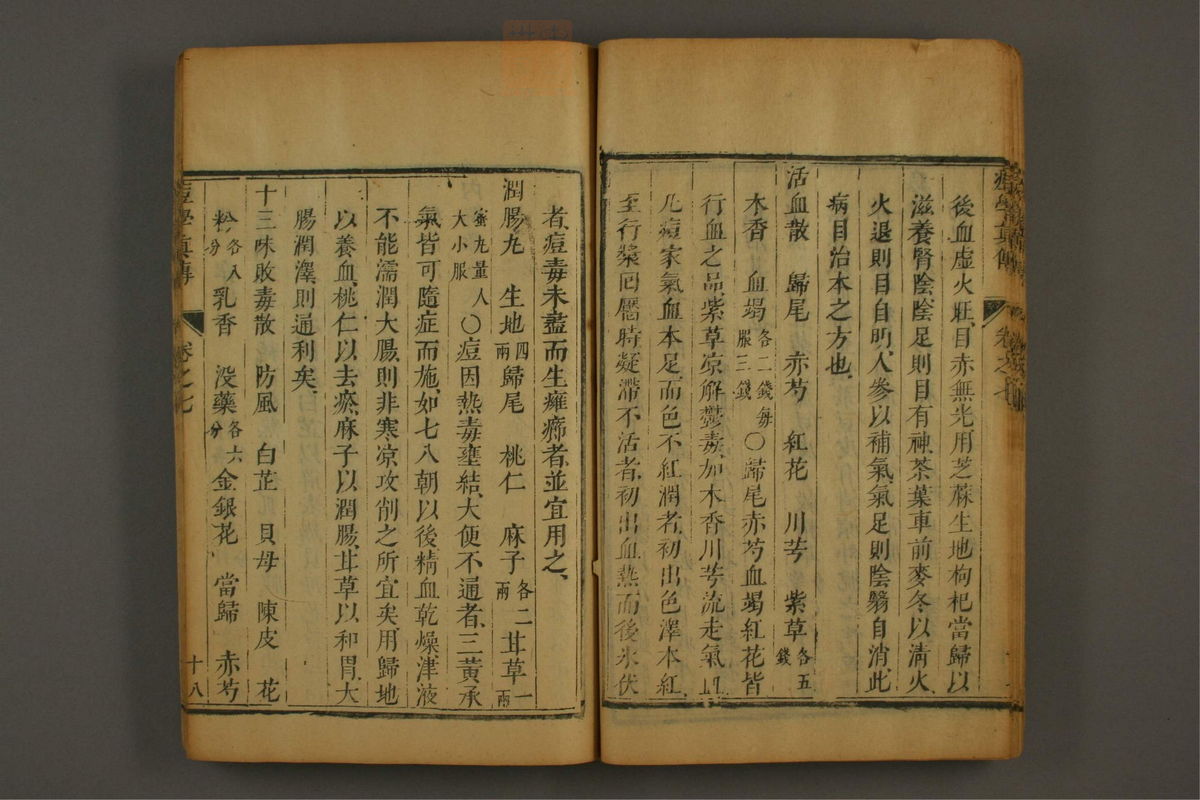 後血虛火旺目赤無光用芝蔴生地枸杞當歸以
滋養腎陰陰足則目有神茶菓車前麥冬以清火
火退則目自明人參以補氣氣足則陰翳自消此
病目治本之方也
活血散 歸尾 赤芍 紅花 川芎 紫草各五錢
木香 血竭各二錢每服三錢〇歸尾赤芍血竭紅花皆
行血之品紫草凉解鬱毒加木香川芎流走氣血
凡痘家氣血本足而色不紅潤者初出色澤本紅
至行漿囘靨時凝滯不活者初出血熱而後氷伏
者痘毒未盡而生癰癤者並宜用之
潤腸丸 生地四兩歸尾 桃仁 麻子各二兩甘草一兩
蜜丸量人大小服〇痘因熱毒壅結大便不通者三黃承
氣皆可隨症而施如七八朝以後精血乾燥津液
不能濡潤大腸則非寒凉攻削之所宜矣用歸地
以養血桃仁以去瘀麻子以潤腸甘草以和胃大
腸潤澤則通利矣
十三味敗毒散 防風 白芷 貝母 陳皮 花
粉各八分乳香 没藥各六分金銀花 當歸 赤芍
痘學真傳 卷之七 十八